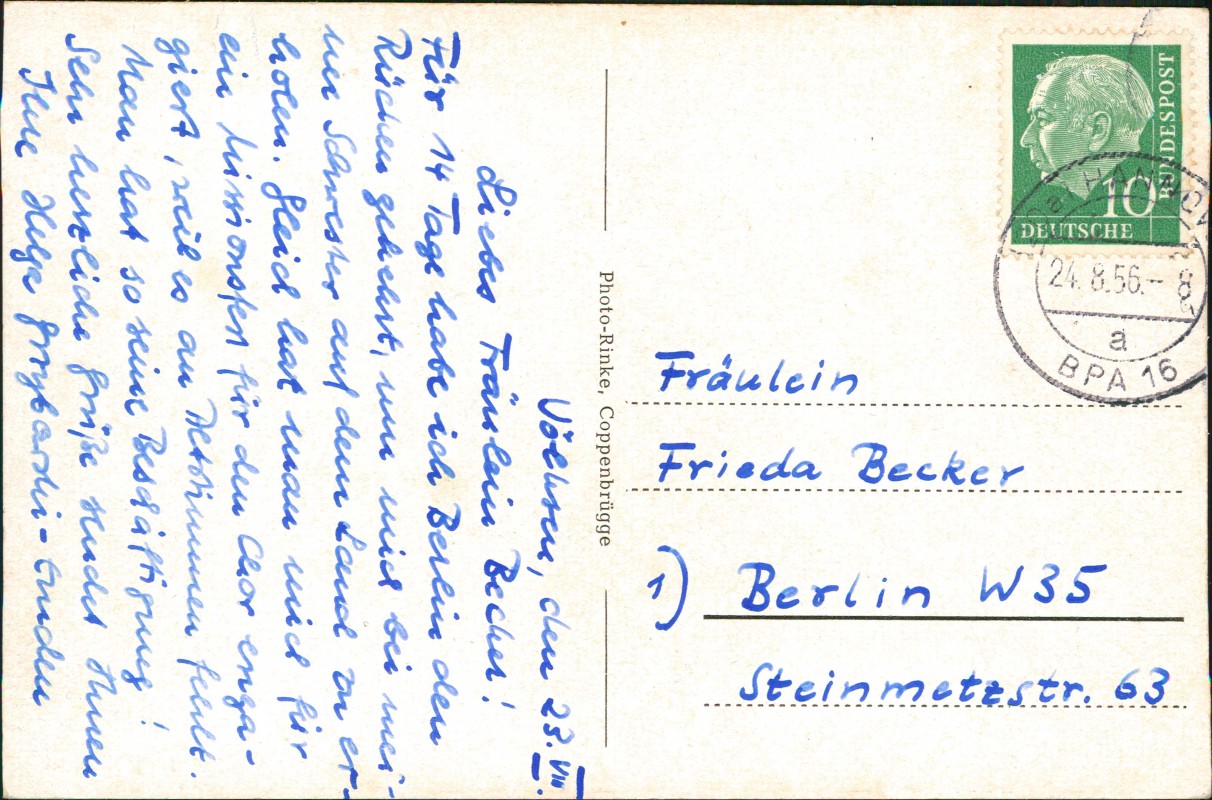 Völksen, den 23. VIII.
Liebes Fräulein Becker!
Für 14 Tage habe ich Berlin den
Rücken gekehrt, um mich bei mei-
ner Schwester auf dem Land zu er-
holen. Gleich hat man mich für
ein Missionsfest für den Chor enga-
giert, weil es an Altstimmen fehlt.
Man hat so seine Beschäftigung!
Sehr herzliche Grüße sendet Ihnen
Ihre Helga
Photo-Rinke, Coppenbrügge
DEUTSCHE
BUNDESPOST
10
a HANNOV
24.8.56.-8
a
BPA 16
Fräulein
Frieda Becker
1) Berlin W35
Steinmetzstr. 63